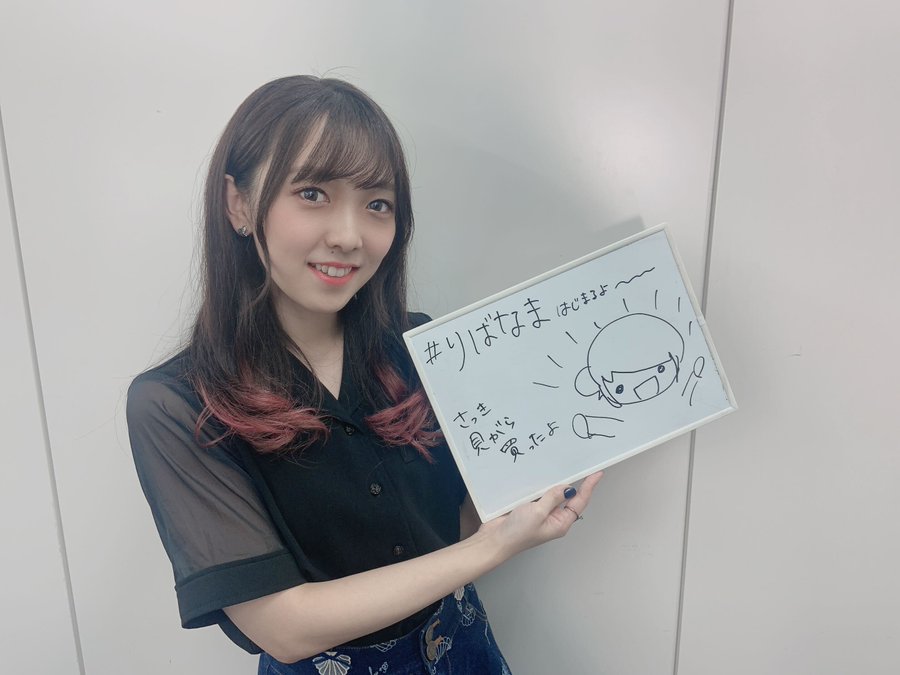 #りばなま はじまるよ〜
さっき
貝がら
買ったよ